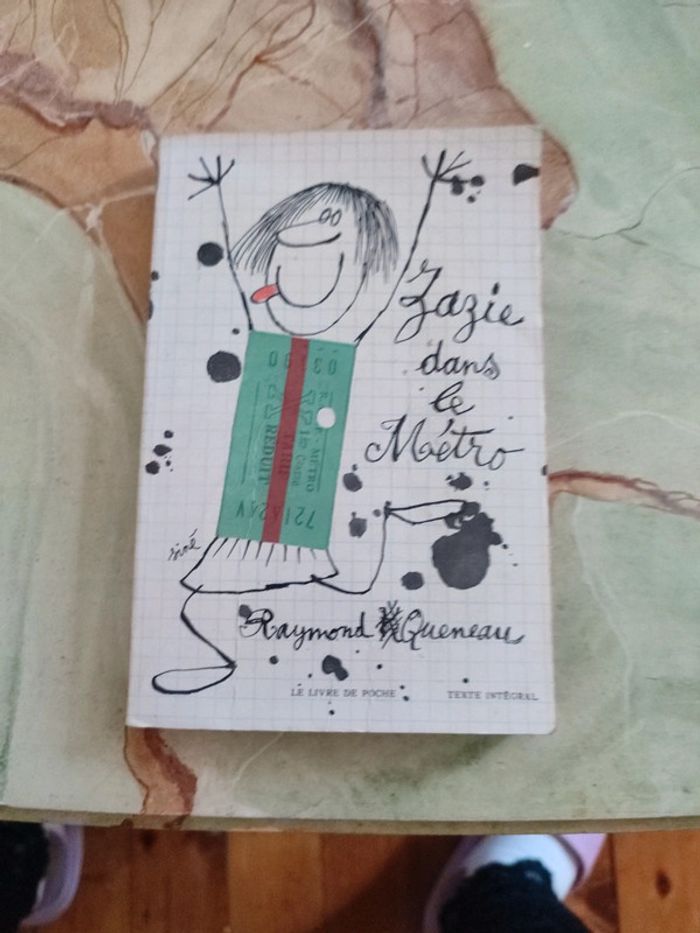 Zazie
dans
le
Métro
TARIF
RÉDUIT
siné
Raymond Queneau
LE LIVRE DE POCHE
TEXTE INTÉGRAL